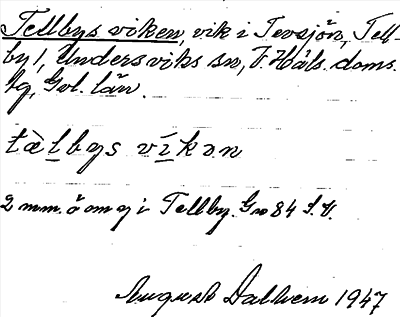 Tellbys viken, vik i Tevsjön, Tell-
by 1, Undersviks sn, V. Häls. doms.
bg, Gvl. län.
tæ̀lbys víkən
2 mm. ö om g i Tellby. Gso 84 S.V.
August Dalhem 1947